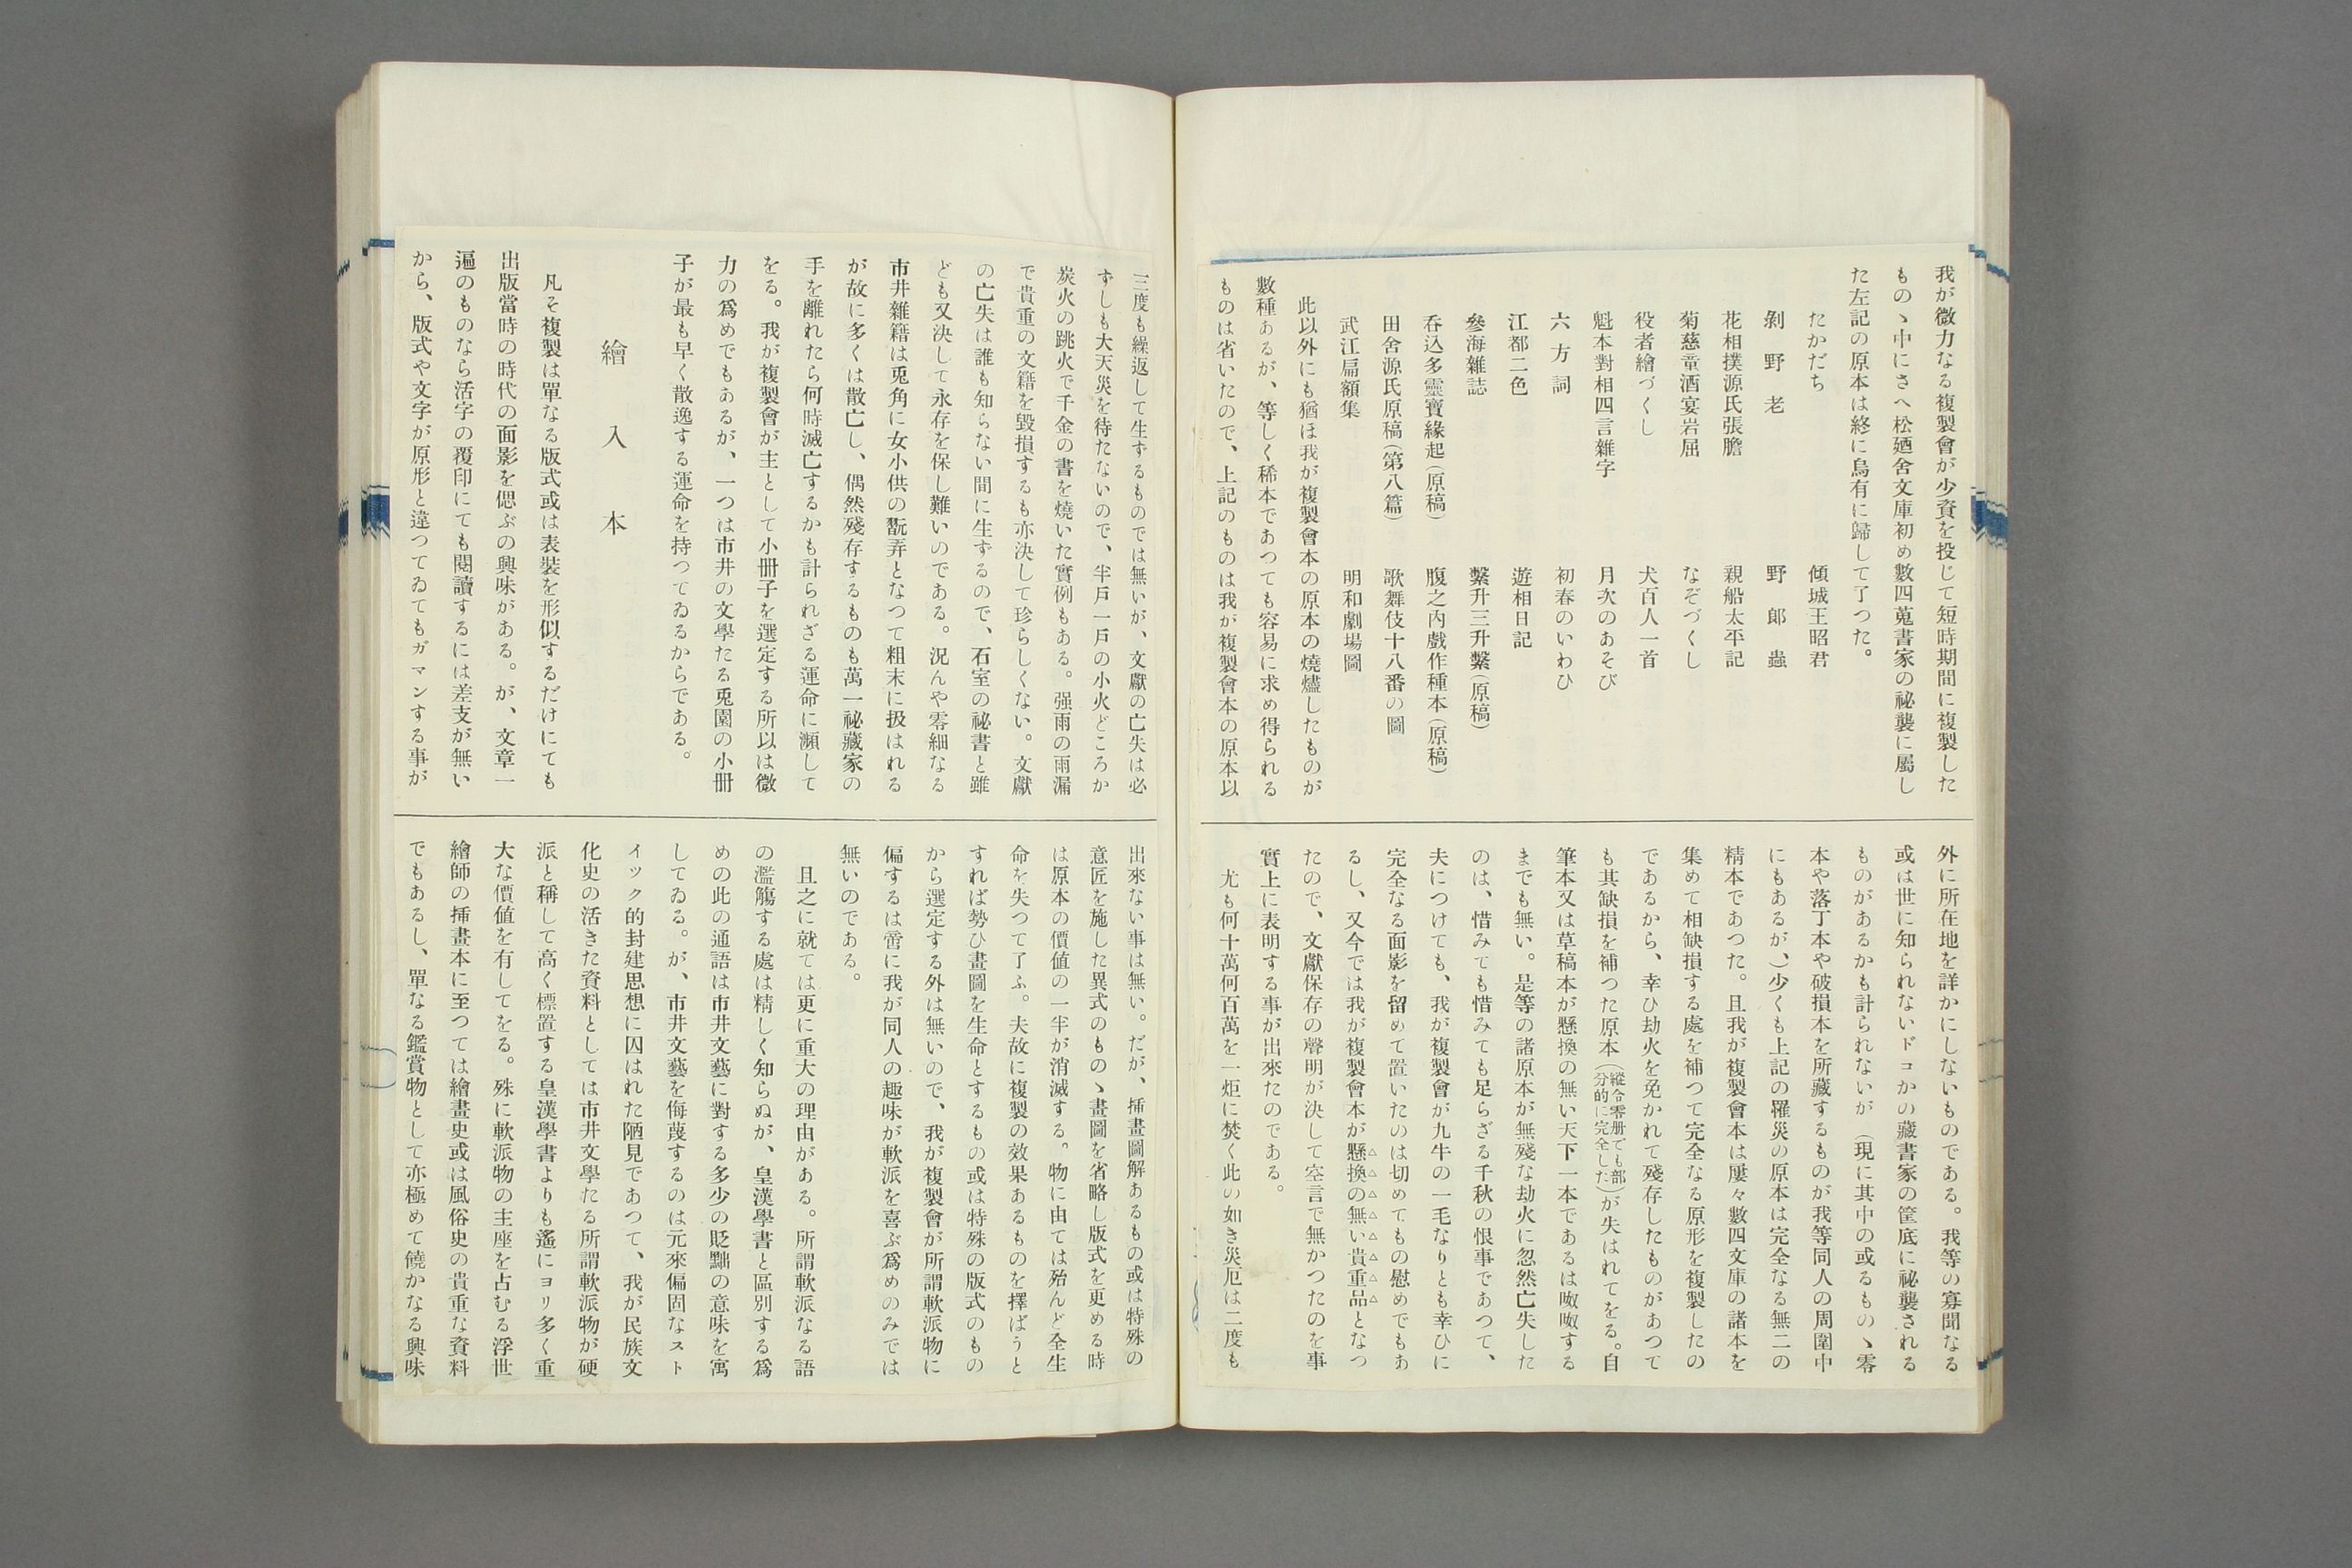 我が微力なる複製會が少資を投じて短時期間に複製した
ものゝ中にさへ松廼舍文庫初め數四蒐書家の祕襲に屬し
た左記の原本は終に烏有に歸して了つた。
たかだち　傾城王昭君
剝野老　野郞蟲
花相撲源氏張膽　親船太平記
菊慈童酒宴岩屈　なぞづくし
役者繪づくし　犬百人一首
魁本對相四言雜字　月次のあそび
六方詞　初春のいわひ
江都二色　遊相日記
參海雜誌　繫升三升繫(原稿)
呑込多靈寶緣起(原稿)　腹之內戲作種本(原稿)
田舍源氏原稿(第八篇)　歌舞伎十八番の圖
武江扁額集　明和劇場圖
此以外にも猶ほ我が複製會本の原本の燒燼したものが
數種あるが、等しく稀本であつても容易に求め得られる
ものは省いたので、上記のものは我が複製會本の原本以
外に所在地を詳かにしないものである。我等の寡聞なる
或は世に知られないドコかの藏書家の筐底に祕襲される
ものがあるかも計られないが（現に其中の或るものゝ零
本や落丁本や破損本を所藏するものが我等同人の周圍中
にもあるが、）少くも上記の罹災の原本は完全なる無二の
精本であつた。且我が複製會本は屢々數四文庫の諸本を
集めて相缺損する處を補つて完全なる原形を複製したの
であるから、幸ひ劫火を免かれて殘存したものがあつて
も其缺損を補つた原本（縱令零册でも部分的に完全した）が失はれてをる。自
筆本又は草稿本が懸換の無い天下一本であるは呶呶する
までも無い。是等の諸原本が無殘な劫火に忽然亡失した
のは、惜みても惜みても足らざる千秋の恨事であつて、
夫につけても、我が複製會が九牛の一毛なりとも幸ひに
完全なる面影を留めて置いたのは切めてもの慰めでもあ
るし、又今では我が複製會本が懸換の無い貴重品となつ
たので、文獻保存の聲明が決して空言で無かつたのを事
實上に表明する事が出來たのである。
尤も何十萬何百萬を一炬に焚く此の如き災厄は二度も
三度も繰返して生ずるものでは無いが、文獻の亡失は必
ずしも大天災を待たないので、半戶一戶の小火どころか
炭火の跳火で千金の書を燒いた實例もある。强雨の雨漏
で貴重の文籍を毀損するも亦決して珍らしくない。文獻
の亡失は誰も知らない間に生ずるので、石室の祕書と雖
ども又決して永存を保し難いのである。況んや零細なる
市井雜籍は兎角に女小供の翫弄となつて粗末に扱はれる
が故に多くは散亡し、偶然殘存するものも萬一祕藏家の
手を離れたら何時滅亡するかも計られざる運命に瀕して
をる。我が複製會が主として小冊子を選定する所以は微
力の爲めでもあるが、一つは市井の文學たる兎園の小冊
子が最も早く散逸する運命を持つてゐるからである。
繪入本
凡そ複製は單なる版式或は表裝を形似するだけにても
出版當時の時代の面影を偲ぶの興味がある。が、文章一
遍のものなら活字の覆印にても閱讀するには差支が無い
から、版式や文字が原形と違つてゐてもガマンする事が
出來ない事は無い。だが、揷畫圖解あるもの或は特殊の
意匠を施した異式のものゝ畫圖を省略し版式を更める時
は原本の價値の一半が消滅する。物に由ては殆んど全生
命を失つて了ふ。夫故に複製の效果あるものを擇ばうと
すれば勢ひ畫圖を生命とするもの或は特殊の版式のもの
から選定する外は無いので、我が複製會が所謂軟派物に
偏するは啻に我が同人の趣味が軟派を喜ぶ爲めのみでは
無いのである。
且之に就ては更に重大の理由がある。所謂軟派なる語
の濫觴する處は精しく知らぬが、皇漢學書と區別する爲
めの此の通語は市井文藝に對する多少の貶黜の意味を寓
してゐる。が、市井文藝を侮蔑するのは元來偏固なスト
イック的封建思想に囚はれた陋見であつて、我が民族文
化史の活きた資料としては市井文學たる所謂軟派物が硬
派と稱して高く標置する皇漢學書よりも遙にヨリ多く重
大な價値を有してをる。殊に軟派物の主座を占むる浮世
繪師の揷畫本に至つては繪畫史或は風俗史の貴重な資料
でもあるし、單なる鑑賞物として亦極めて饒かなる興味